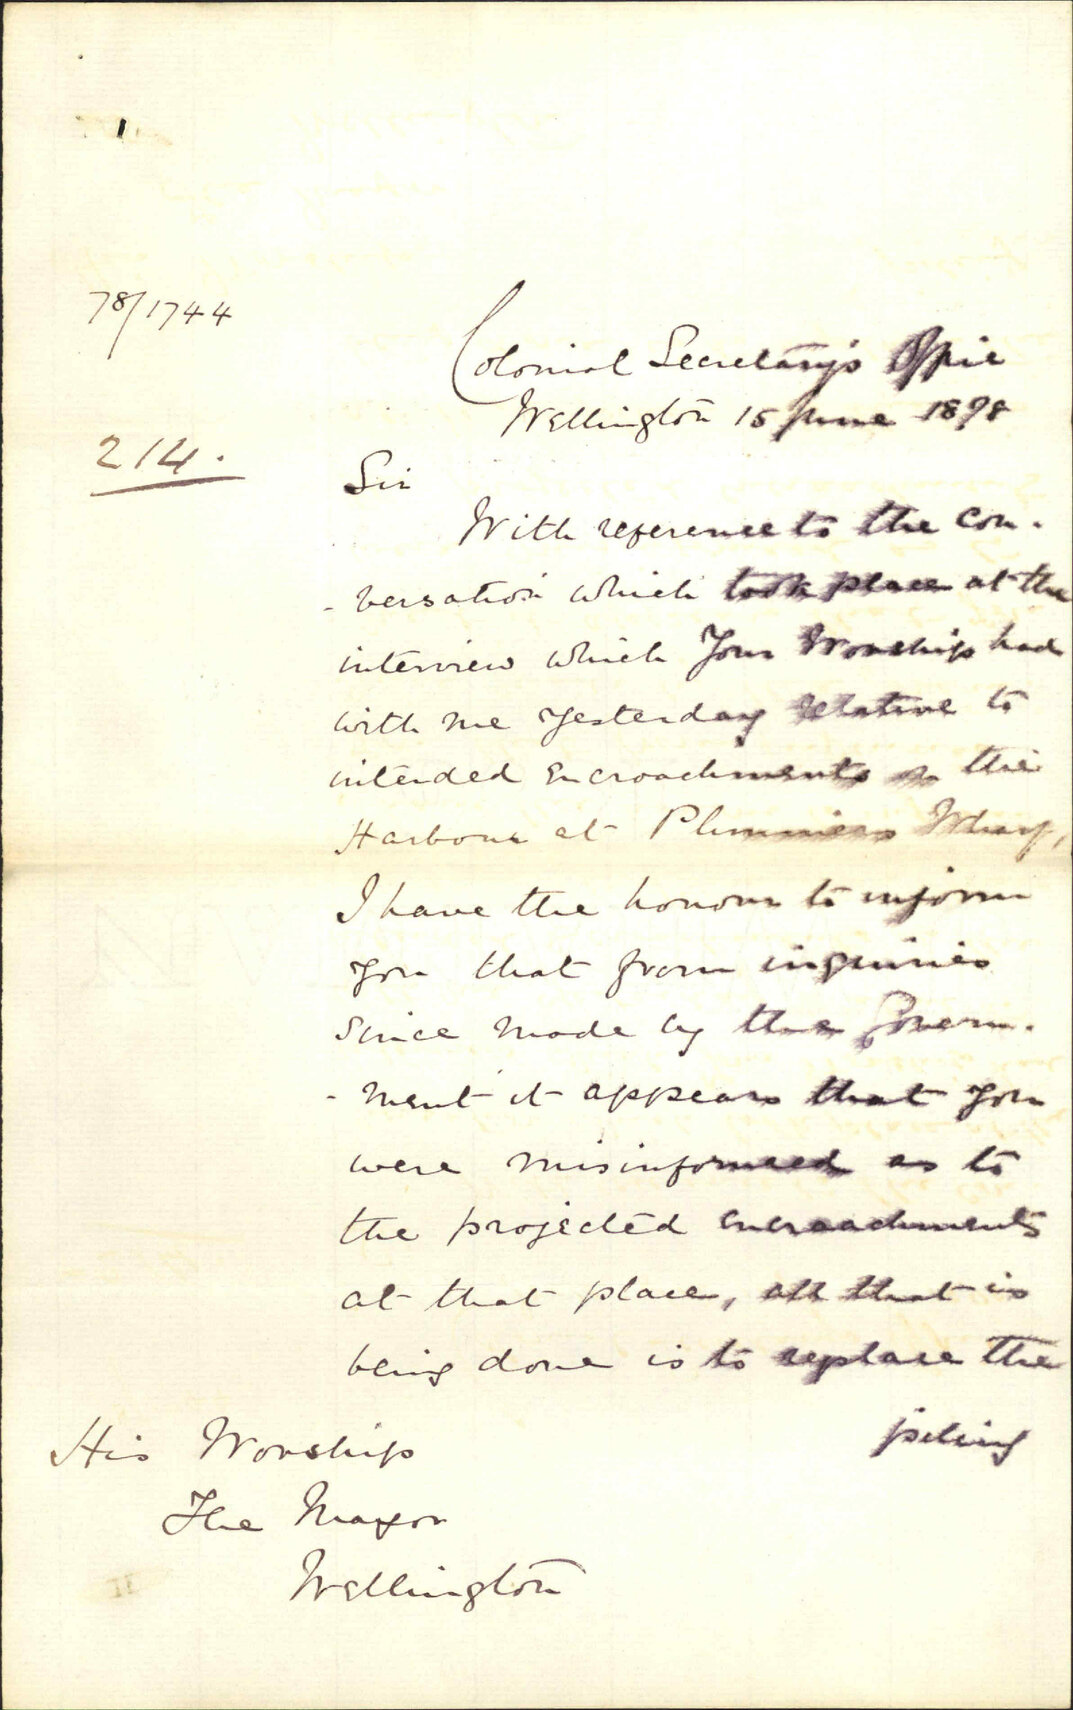 78/1744
Colonial Secretary's Office
Wellington 15 June 1878
214.
Sir
With reference to the con-
-versation which took place at the
interview which Your Worship had
with me yesterday relative to
intended encroachments on the
Harbour at Plimmers Wharf,
I have the honour to inform
you that from inquiries
since made by the Govern-
-ment it appears that you
were misinformed as to
the projected encroachments
at that place, all that is
being done is to replace the
piling
His Worship
The Mayor
Wellington